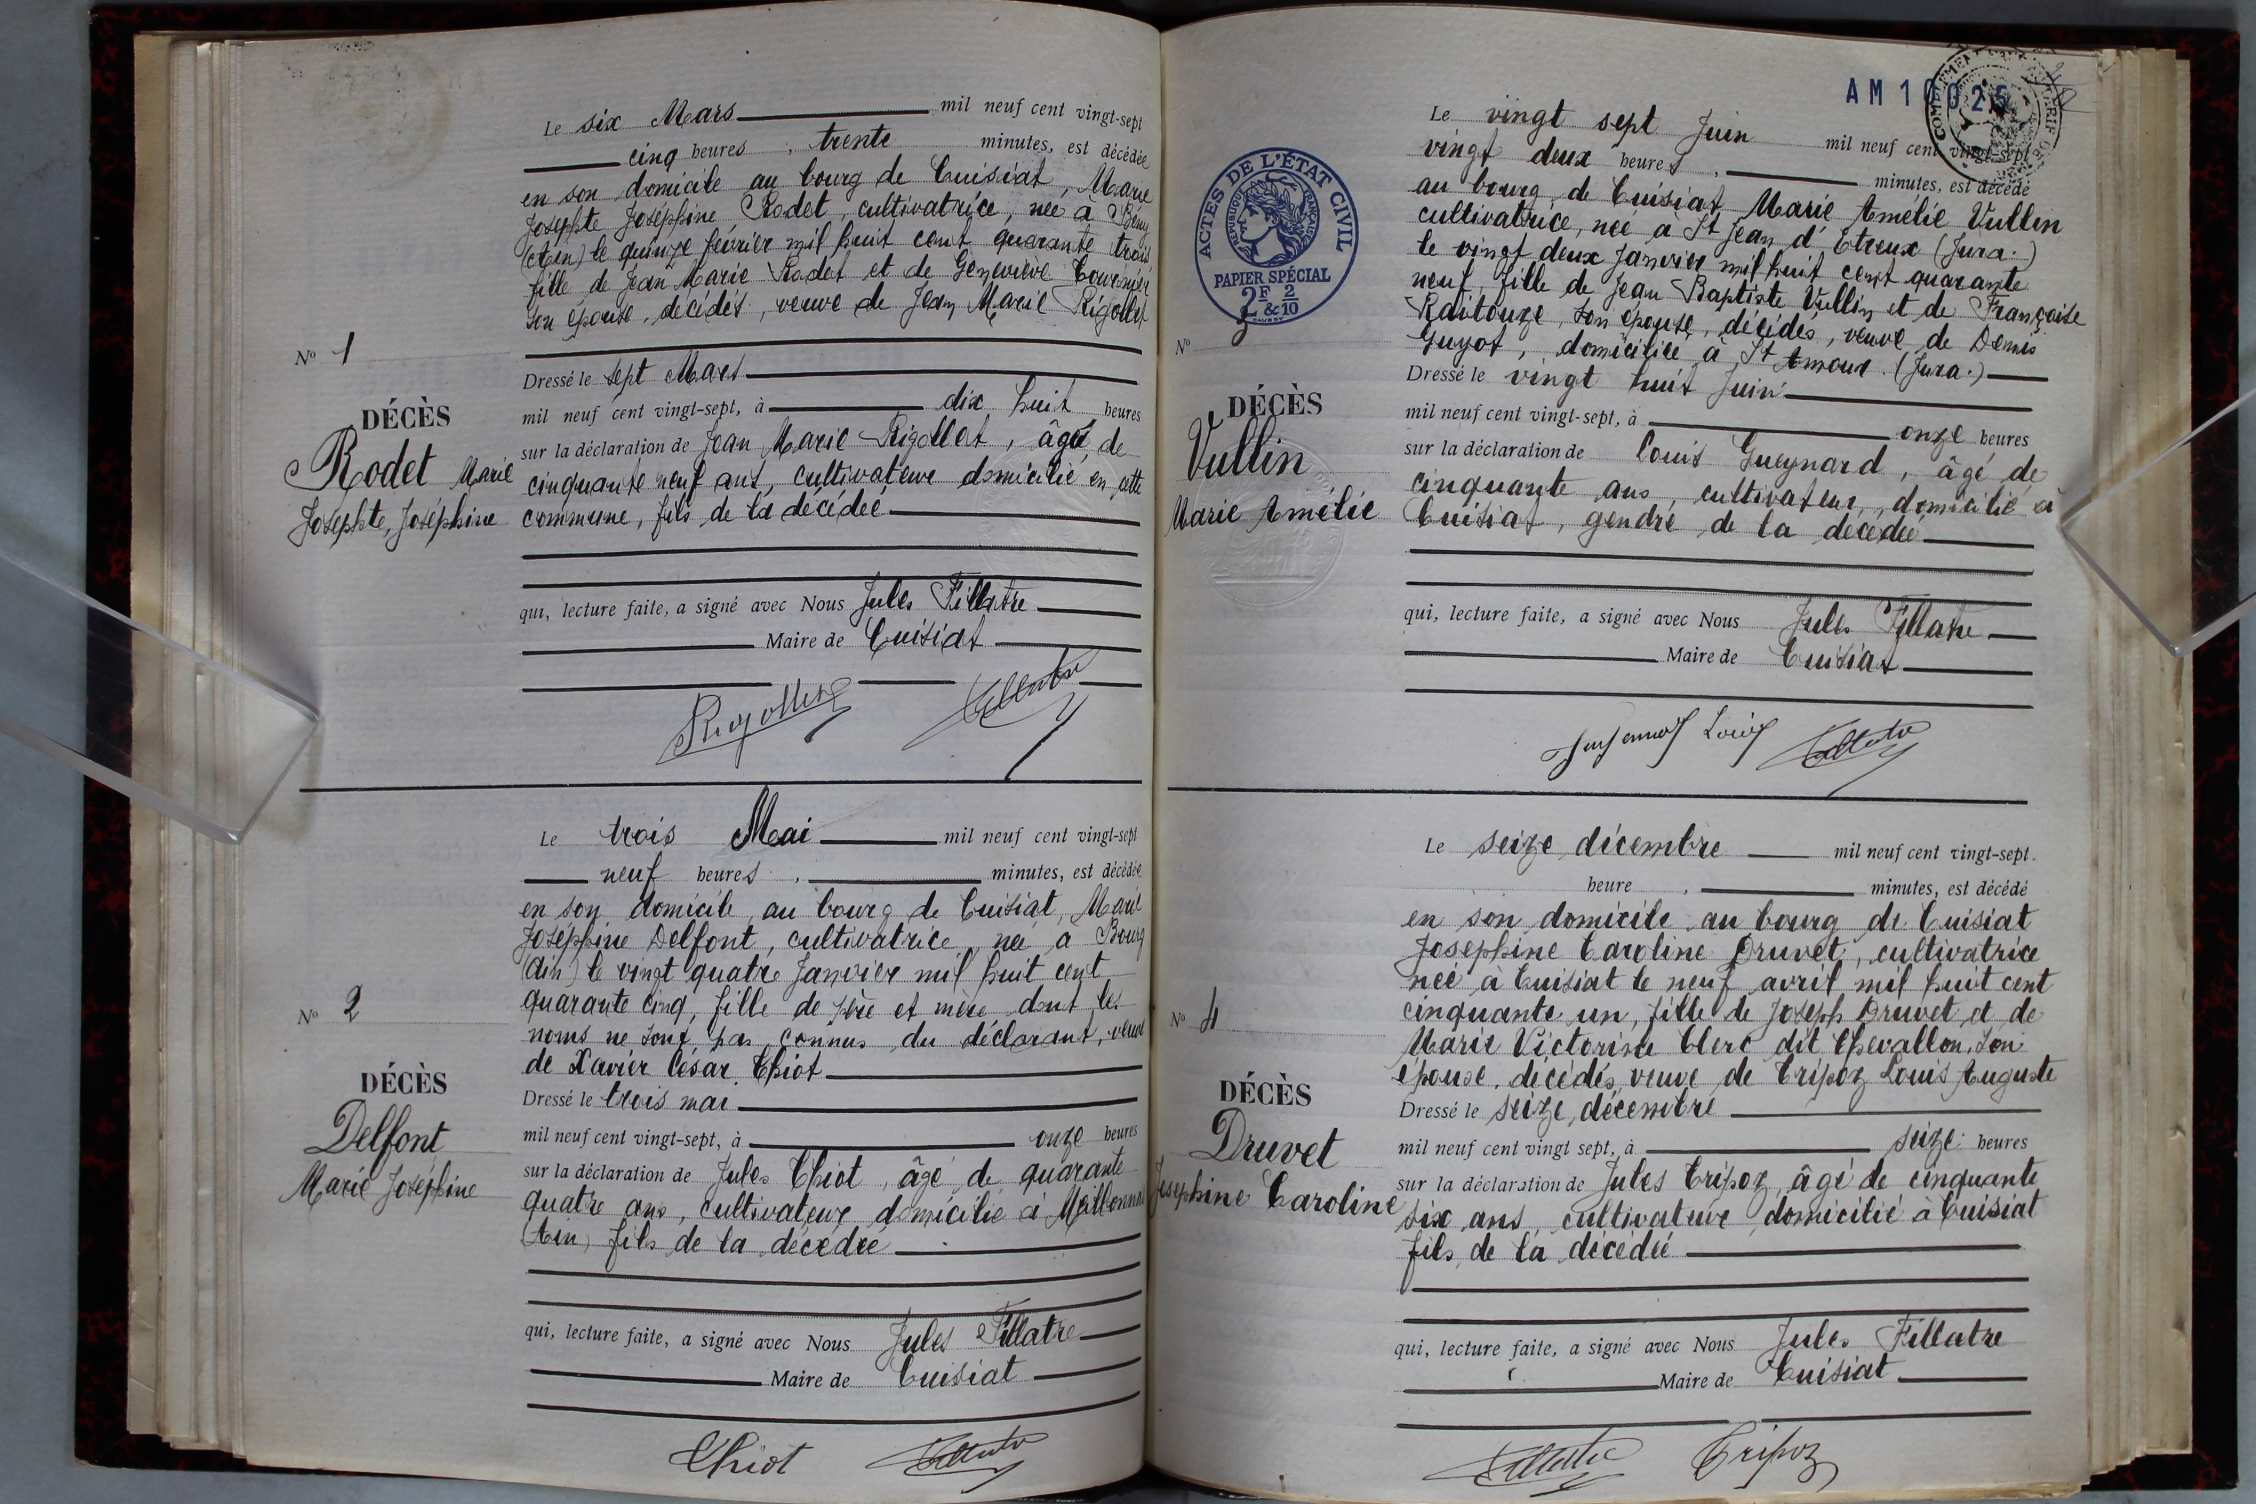 Le six Mars mil neuf cent vingt-sept
cinq heures, trente minutes, est décédée
en son domicile au bourg de Cuisiat, Marie
Josephte Joséphine Rodet, cultivatrice, née à Bény
(Ain) le quinze février mil huit cent quarante trois
fille de Jean Marie Rodet et de Geneviève Cournier
son épouse, décédés, veuve de Jean Marie Rigollet
N° 1
Dressé le sept Mars
mil neuf cent vingt-sept, à dix huit heures
DÉCÈS
sur la déclaration de Jean Marie Rigollet, âgé de
Rodet Marie
cinquante neuf ans, cultivateur domicilié en cette
Josephte, Joséphine
commune, fils de la décédée
qui, lecture faite, a signé avec Nous Jules Fillatre
Maire de Cuisiat
Rigollet Fillatre
Le trois Mai mil neuf cent vingt-sept
neuf heures, minutes, est décédée
en son domicile, au bourg de Cuisiat, Marie
Joséphine Delfont, cultivatrice, née à Bourg
(Ain) le vingt quatre Janvier mil huit cent
quarante cinq, fille de père et mère dont les
N° 2
noms ne sont pas connus du déclarant, veuve
de Xavier César Chiot
DÉCÈS
Dressé le trois mai
Delfont
mil neuf cent vingt-sept, à onze heures
Marie Joséphine
sur la déclaration de Jules Chiot, âgé de quarante
quatre ans, cultivateur domicilié à Meillonnas
(Ain) fils de la décédée
qui, lecture faite, a signé avec Nous Jules Fillatre
Maire de Cuisiat
Chiot Fillatre
AM 10026
ACTES DE L'ÉTAT CIVIL
RÉPUBLIQUE FRANÇAISE
PAPIER SPÉCIAL
2F & 2/10
Le vingt sept Juin mil neuf cent vingt-sept
vingt deux heures, minutes, est décédé
au bourg de Cuisiat Marie Amélie Vullin
cultivatrice, née à St Jean d'Etreux (Jura.)
le vingt deux Janvier mil huit cent quarante
neuf, fille de Jean Baptiste Vullin et de Françoise
Raitouze, son épouse, décédés, veuve de Denis
N° 3
Guyot, domiciliée à St Amour (Jura.)
Dressé le vingt huit Juin
DÉCÈS
mil neuf cent vingt-sept, à onze heures
Vullin
sur la déclaration de Louis Gueynard, âgé de
Marie Amélie
cinquante ans, cultivateur, domicilié à
Cuisiat, gendre de la décédée
qui, lecture faite, a signé avec Nous Jules Fillatre
Maire de Cuisiat
Louis Fillatre
Le seize décembre mil neuf cent vingt-sept.
heure, minutes, est décédé
en son domicile au bourg de Cuisiat
Josephine Caroline Druvet, cultivatrice
née à Cuisiat le neuf avril mil huit cent
cinquante un, fille de Joseph Druvet et de
N° 4
Marie Victorine Clerc dit Chevallon, son
épouse, décédés, veuve de Tripoz Louis Auguste
DÉCÈS
Dressé le seize décembre
Druvet
mil neuf cent vingt sept, à seize heures
Josephine Caroline
sur la déclaration de Jules Tripoz, âgé de cinquante
six ans, cultivateur domicilié à Cuisiat
fils de la décédée
qui, lecture faite, a signé avec Nous Jules Fillatre
Maire de Cuisiat
Fillatre Tripoz